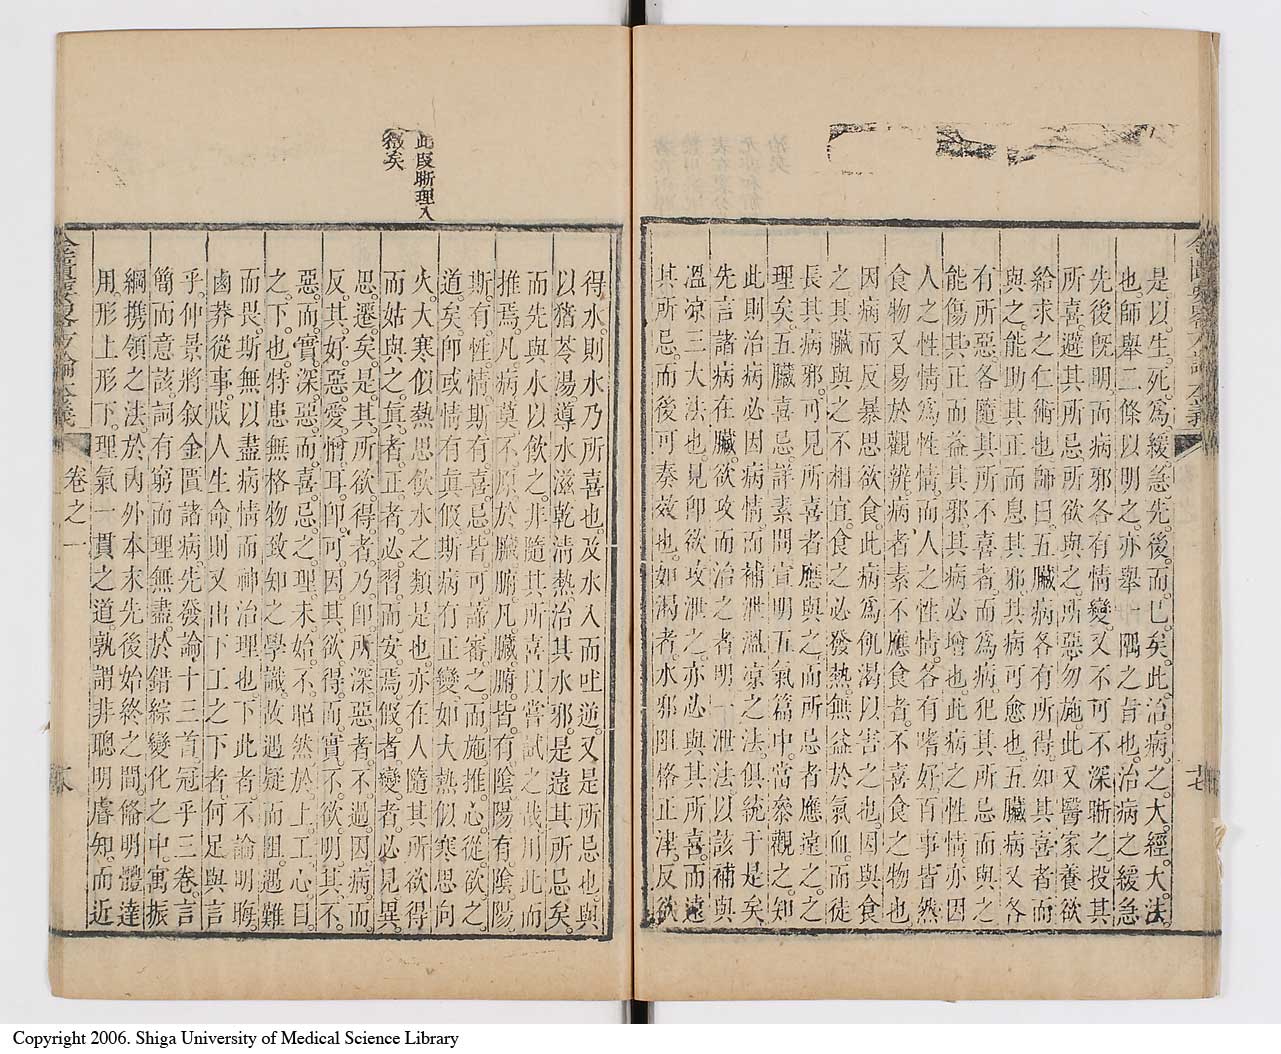 是以生死爲緩急先後而已矣。此治病之大經大法
也。師舉二條以明之。亦舉一隅之旨也。治病之緩急
先後旣明。而病邪各有情變。又不可不深晰之。投其
所喜。避其所忌。所欲與之。所惡勿施。此又醫家養欲
給求之仁術也。師曰。五臟病各有所得。如其喜者而
與之。能助其正而息其邪。其病可愈也。五臟病又各
有所惡。各隨其所不喜者。而爲病。犯其所忌而與之
能傷其正。而益其邪。其病必增也。此病之性情。亦因
人之性情。爲性情。而人之性情。各有嗜好。百事皆然
食物又易於觀辨。病者素不應食者。不喜食之物也
因病而反暴思欲食。此病爲飢渴以害之也。因與食
之其臟與之不相宜。食之必發熱。無益於氣血。而徒
長其病邪。可見所喜者應與之。而所忌者應遠之。之
理矣。五臟喜忌詳素問宣明五氣篇中。當叅觀之。知
此則治病必因病情而補泄溫凉之法。俱統于是矣
先言諸病在臟。欲攻而治之者。明一泄法。以該補與
溫凉三大法也。見卽欲攻泄之。亦必與其所喜。而遠
其所忌。而後可奏效也。如渴者。水邪阻格正津。反欲
得水。則水乃所喜也。及水入而吐逆。又是所忌也。與
以猪苓湯。導水滋乾。清熱治其水邪。是遠其所忌矣。
而先與水以飲之。非隨其所喜以嘗試之哉。川此而
推焉。凡病莫不原於臟腑。凡臟腑。皆有陰陽。有陰陽。
斯有性情。斯有喜忌。皆可諦審之。而施推心從欲之
道矣。卽或情有眞假。斯病有正變。如大熱似寒思向
火。大寒似熱思飲水之類是也。亦在人隨其所欲得
而姑與之。眞者正者必習而安焉。假者變者必見異
思遷矣。是其所欲得者。乃卽所深惡者。不過因病而
反其好惡愛憎耳。卽可因其欲得。而實不欲。明其不
惡。而實深惡。而喜忌之理。未始不昭然於上工心目
之下也。特患無格物致知之學識。故遇疑而阻。遇難
而畏。斯無以盡病情而神治理也。下此者。不論明晦
鹵莽從事。戕人生命。則又出下工之下者。何足與言
乎。仲景將叙金匱諸病。先發論十三首。冠乎三卷。言
簡而意該。詞有窮而理無盡。於錯綜變化之中。寓振
綱携領之法。於內外本末先後始終之間。脩明體達
用形上形下。理氣一貫之道。孰謂非聰明睿知。而近
此段晰理入
微矣
卷之一